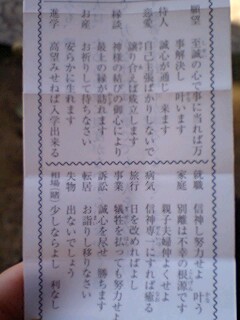 願望 至誠の心で事に当れば万事解決し 叶います
待人 誠心が通じ 来ます
恋愛 自己を張ばかりしないで譲り合えば成立します
縁談 神様の結びの御心により最上の縁が訪れます
お産 お祈りして待ちなさい安らかに生れます
進学 高望みせねば入学出来る
就職 信神し努力せよ 叶う
家庭 別離は不幸の根源です親子夫婦仲よくせよ
病気 信神専一にすれば癒る
旅行 日を改めればよし
事業 犠牲を払っても努力せよ
訴訟 誠心を尽せ 勝ちます
転居 お詣りし移りなさい
失物 出ないでしょう
相場(賭) 少しならよし 利なし